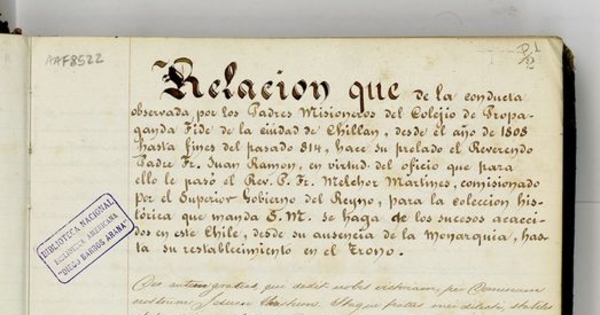 AAF8522
P. 1
Relacion que de la conducta
observada, por los Padres Misioneros del Colejio de Propa-
ganda Fide de la ciudad de Chillan, desde el año de 1808
hasta fines del pasado 814, hace su prelado el Reverendo
Padre Fr. Juan Ramon, en virtud del oficio que para
ello le pasó el Rev. P. Fr. Melchor Martines, comisionado
por el Superior Gobierno del Reyno, para la coleccion his-
tórica que manda S. M. se haga de los sucesos acaeci-
dos en este Chile, desde su ausencia de la Monarquia, has-
ta su restablecimiento en el Trono.
BIBLIOTECA NACIONAL
BIBLIOTECA AMERICANA
"DIEGO BARROS ARANA"
Deo autem gratias, qui dedit nobis victoriam, per Dominum
nostrum Jesum Christum. Itaque fratres mei dilecti, stabiles